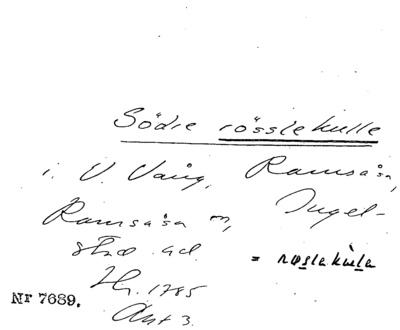 Södre rösslekulle
i V. Vång, Ramsåsa,
Ramsåsa sn, Ingel-
stad hd.
= røslekula
Hr. 1785
Akt 3.
Nr 7689.